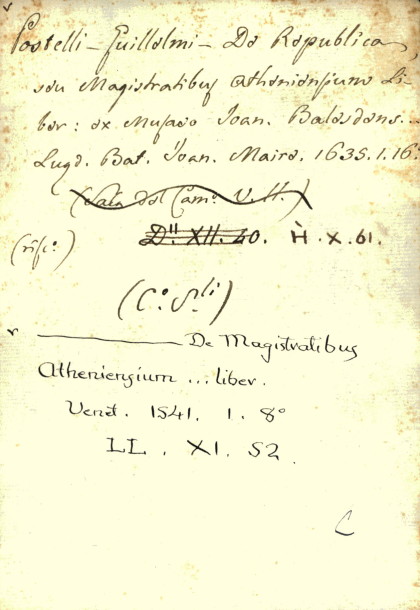 Postelli - Guillelmi - De Republica,
seu Magistratibus Atheniensium Li-
ber: ex Musaeo Joan. Balesdens...
Lugd. Bat. Joan. Maire. 1635. 1. 16.
(Sala del Cam.º V. H.)
D'' XII. 40. H. X. 61.
(C.º S.li)
———— De Magistratibus
Atheniensium ... liber.
Venet. 1541. 1. 8º
LL. XI. 52.